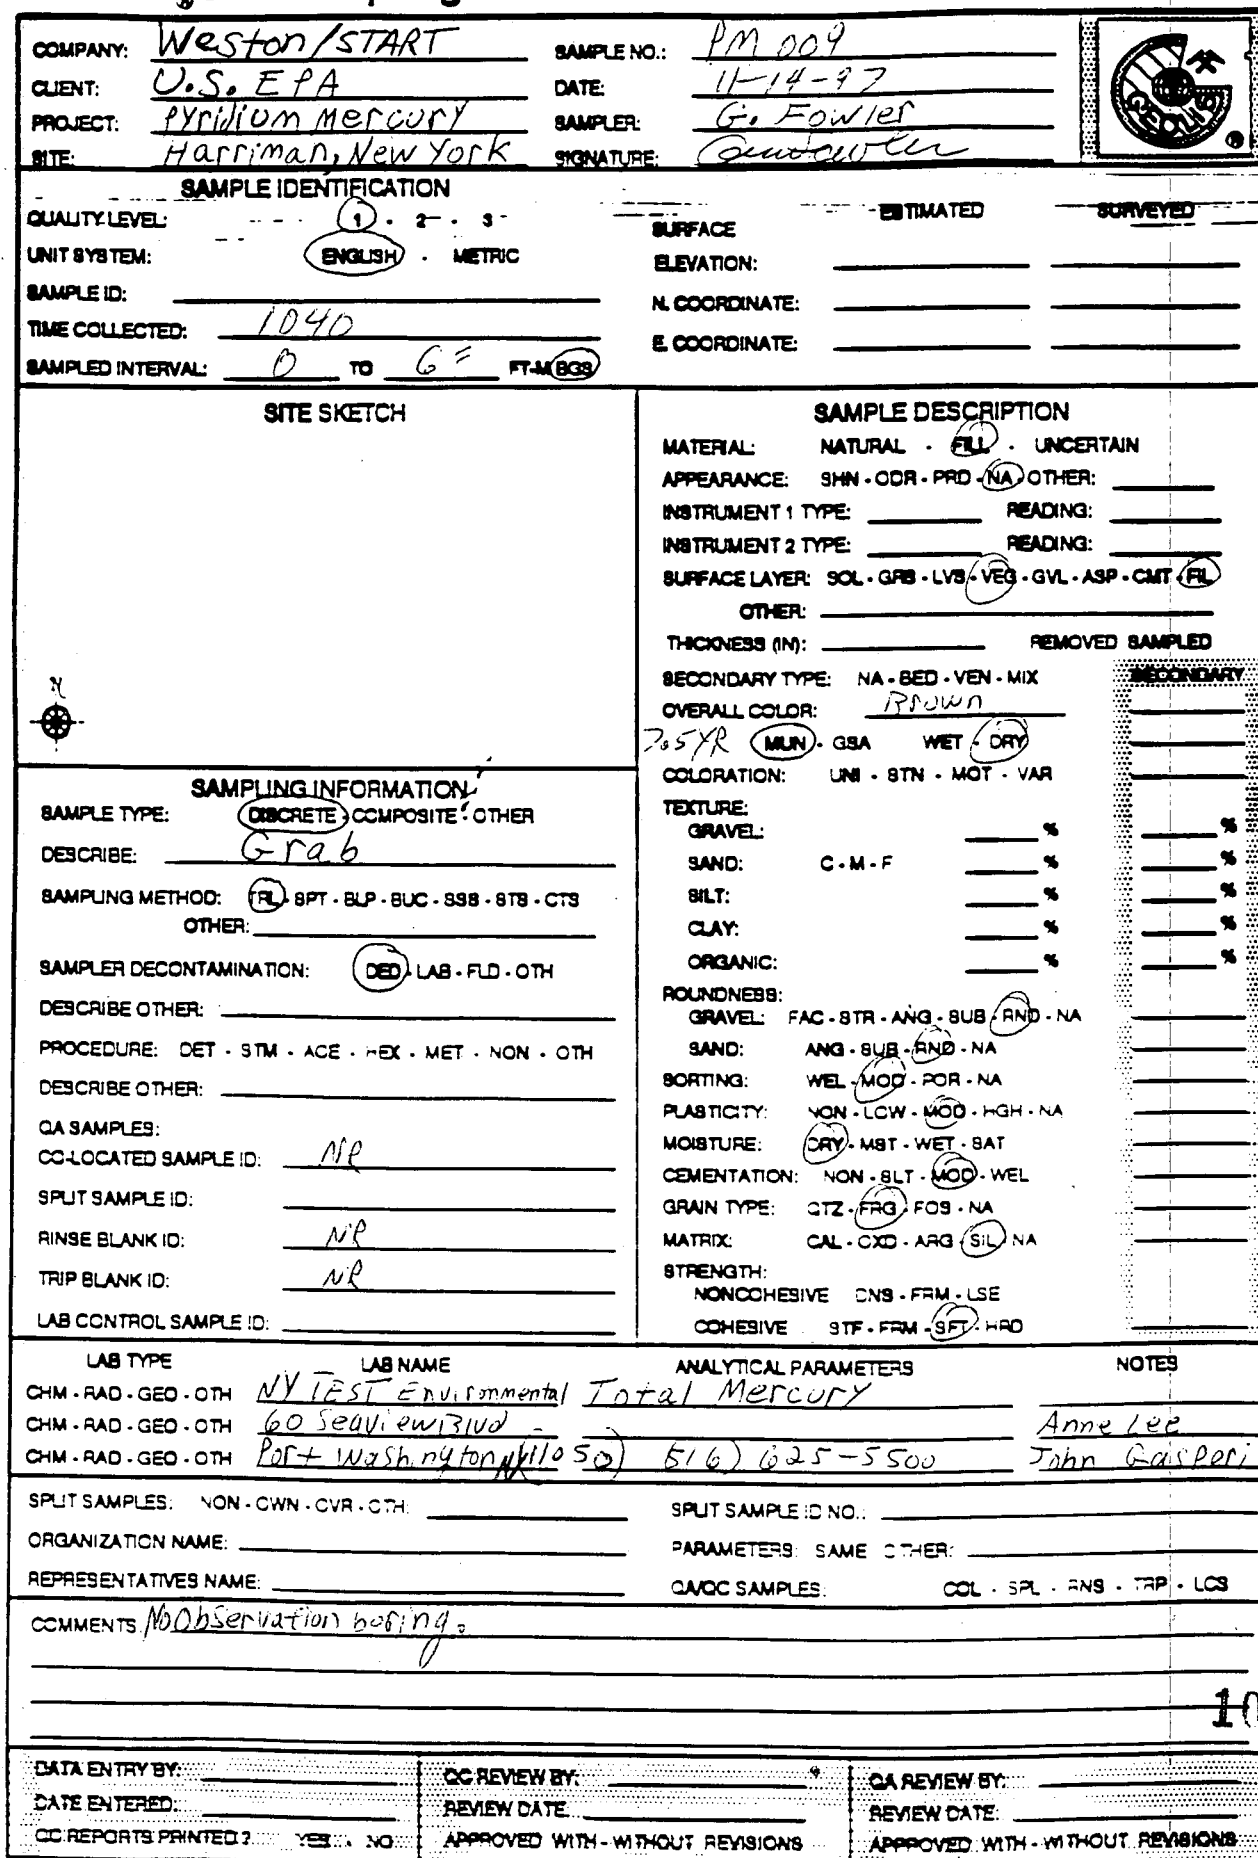 COMPANY: Weston/START SAMPLE NO.: PM 009
CLIENT: U.S. EPA DATE: 11-14-97
PROJECT: Pyridium Mercury SAMPLER: G. Fowler
SITE: Harriman, New York SIGNATURE:
GEOLIS ®
SAMPLE IDENTIFICATION
QUALITY LEVEL: 1 - 2 - 3
UNIT SYSTEM: ENGLISH - METRIC
SAMPLE ID:
TIME COLLECTED: 1040
SAMPLED INTERVAL: 0 TO 6" FT-M BGS
ESTIMATED SURVEYED
SURFACE
ELEVATION:
N. COORDINATE:
E. COORDINATE:
SITE SKETCH
N
SAMPLING INFORMATION
SAMPLE TYPE: DISCRETE - COMPOSITE - OTHER
DESCRIBE: Grab
SAMPLING METHOD: TRL - SPT - BLP - BUC - SSS - STS - CTS
OTHER:
SAMPLER DECONTAMINATION: DED - LAB - FLD - OTH
DESCRIBE OTHER:
PROCEDURE: DET - STM - ACE - HEX - MET - NON - OTH
DESCRIBE OTHER:
QA SAMPLES:
CO-LOCATED SAMPLE ID: NR
SPLIT SAMPLE ID:
RINSE BLANK ID: NR
TRIP BLANK ID: NR
LAB CONTROL SAMPLE ID:
SAMPLE DESCRIPTION
MATERIAL: NATURAL - FILL - UNCERTAIN
APPEARANCE: SHN - ODR - PRD - NA - OTHER:
INSTRUMENT 1 TYPE: READING:
INSTRUMENT 2 TYPE: READING:
SURFACE LAYER: SOL - GRS - LVS - VEG - GVL - ASP - CMT - FIL
OTHER:
THICKNESS (IN): REMOVED SAMPLED
SECONDARY TYPE: NA - BED - VEN - MIX SECONDARY
OVERALL COLOR: Brown
7.5YR MUN - GSA WET - DRY
COLORATION: UNI - STN - MOT - VAR
TEXTURE:
GRAVEL: % %
SAND: C - M - F % %
SILT: % %
CLAY: % %
ORGANIC: % %
ROUNDNESS:
GRAVEL: FAC - STR - ANG - SUB - RND - NA
SAND: ANG - SUB - RND - NA
SORTING: WEL - MOD - POR - NA
PLASTICITY: NON - LOW - MOD - HGH - NA
MOISTURE: DRY - MST - WET - SAT
CEMENTATION: NON - SLT - MOD - WEL
GRAIN TYPE: QTZ - FRG - FOS - NA
MATRIX: CAL - OXD - ARG - SIL - NA
STRENGTH:
NONCOHESIVE DNS - FRM - LSE
COHESIVE STF - FRM - SFT - HRD
LAB TYPE LAB NAME ANALYTICAL PARAMETERS NOTES
CHM - RAD - GEO - OTH NYTEST Environmental Total Mercury
CHM - RAD - GEO - OTH 60 Seaview Blvd Anne Lee
CHM - RAD - GEO - OTH Port Washington NY 11050) 516) 625-5500 John Gaspari
SPLIT SAMPLES: NON - OWN - OVR - OTH: SPLIT SAMPLE ID NO.:
ORGANIZATION NAME: PARAMETERS: SAME OTHER:
REPRESENTATIVES NAME: QA/QC SAMPLES: COL - SPL - RNS - TRP - LCS
COMMENTS No Observation boring.
10
DATA ENTRY BY: QC REVIEW BY: QA REVIEW BY:
DATE ENTERED: REVIEW DATE: REVIEW DATE:
QC REPORTS PRINTED? YES - NO APPROVED WITH - WITHOUT REVISIONS APPROVED WITH - WITHOUT REVISIONS